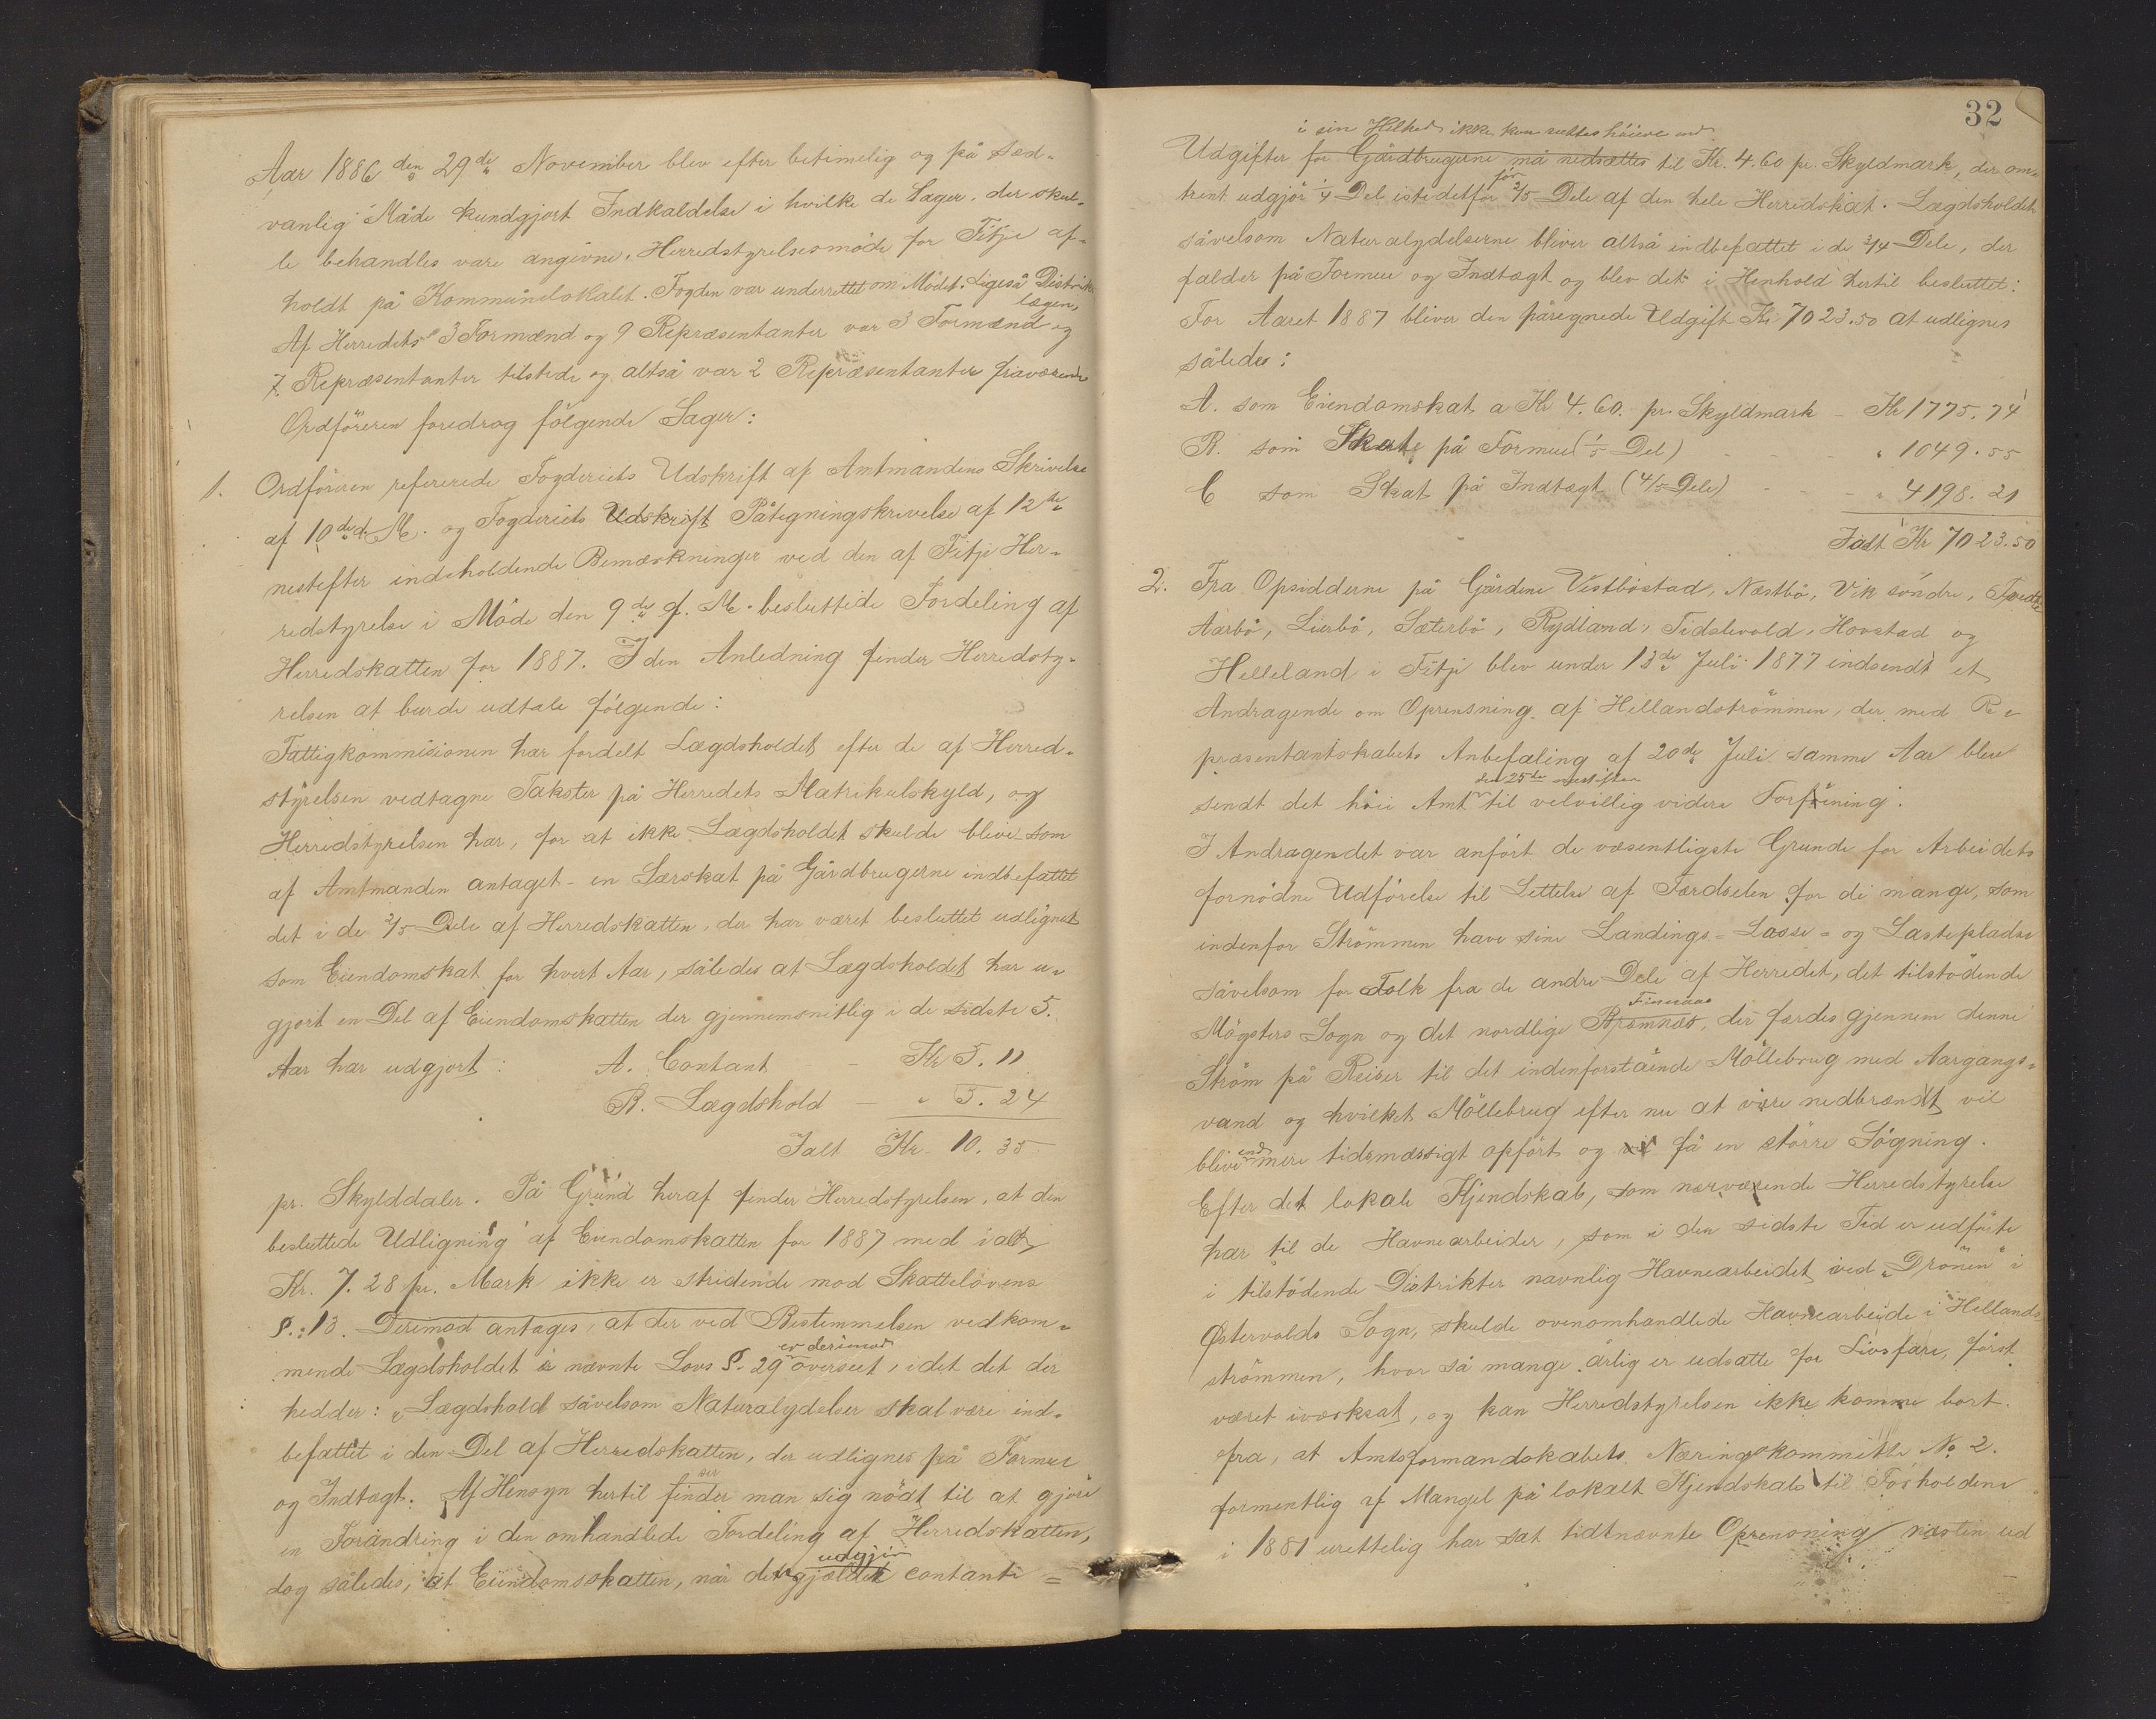 Aar 1886 den 29de November blev efter betimelig og på sæd-
vanlig Måde kundgjort Indkaldelse i hvilke de Sager, der skul-
le behandles vare angivne, Herredstyrelsesmöde for Fitje af-
holdt på Kommunelokalet. Fogden var underrettet om Mödet. Ligeså Distrikts
lægen,
Af Herredets 3 Formænd og 9 Repræsentanter var 3 Formænd og
7 Repræsentanter tilstede og altså var 2 Repræsentanter fraværende
Ordföreren foredrog fölgende Sager:
1. Ordföreren refererede Fogderiets Udskrift af Amtmandens Skrivelse
af 10de d. M. og Fogderiets Udskrift Påtegningskrivelse af 12te
nestefter indeholdende Bemærkninger ved den af Fitje Her-
redstyrelse i Möde den 9de f. M. besluttede Fordeling af
Herredskatten for 1887. I den Anledning finder Herredsty-
relsen at burde udtale fölgende:
Fattigkommisionen har fordelt Lægdsholdet efter de af Herred-
styrelsen vedtagne Takster på Herredets Matrikulskyld, og
Herredstyrelsen har, for at ikke Lægdsholdet skulde blive som
af Amtmanden antaget - en Særskat på Gårdbrugerne indbefattet
det i de 2/5 Dele af Herredskatten, der har været besluttet udlignet
som Eiendomskat for hvert Aar, således at Lægdsholdet har u-
gjort en Del af Eiendomskatten der gjennemsnitlig i de sidste 5.
Aar har udgjort: A. Contant - Kr 5. 11
B. Lægdshold - " 5. 24
Ialt Kr. 10. 35
pr. Skylddaler. På Grund heraf finder Herredstyrelsen, at den
besluttede Udligning af Eiendomskatten for 1887 med ialt
Kr. 7. 28 pr. Mark ikke er stridende mod Skattelovens
§.: 13. Derimod antages, at der ved Bestemmelsen vedkom-
er derimod
mende Lægdsholdet i nævnte Lovs §. 29 overseet, idet det der
hedder: "Lægdshold såvelsom Naturalydelser skal være ind-
befattet i den Del af Herredskatten, der udlignes på Formue
ser
og Indtægt. Af Hensyn hertil finder man sig nödt til at gjöre
en Forandring i den omhandlede Fordeling af Herredskatten,
udgjör
dog således, at Eiendomsskatten, når det gjælder contante =
32
i sin Helhed ikke kan sættes höiere end
Udgifter for Gårdbrugerne må nedsættes til Kr. 4.60 pr. Skyldmark, der om-
för
trent udgjör 1/4 Del istedetfor 2/5 Dele af den hele Herredskat. Lægdsholdet
såvelsom Naturalydelserne bliver altså indbefattet i de 3/4 Dele, der
falder på Formue og Indtægt og blev det i Henhold hertil besluttet:
For Aaret 1887 bliver den påregnede Udgift Kr 7023.50 at udlignes
således:
A. som Eiendomskat a Kr 4.60. pr. Skyldmark - Kr 1775.74
B. som Skat på Formue (1/5 Del) - - - " 1049.55
C som Skat på Indtægt (4/5 Dele) - - - " 4198.21
Ialt Kr 7023.50
2. Fra Opsidderne på Gårdene Vestböstad, Næstbö, Vik söndre,
Aarbö, Lierbö, Sæterbö, Rydland, Tislevold, Hovstad og
Helleland i Fitje blev under 13de Juli 1877 indsendt et
Andragende om Oprensning af Hellandströmmen, der med Re-
præsentantskabets Anbefaling af 20de Juli samme Aar blev
den 25de nestefter
sendt det höie Amt til velvillig videre Forföining.
I Andragendet var anfört de væsentligste Grunde for Arbeidets
fornödne Udförelse til Lettelse af Færdselen for de mange, som
indenfor Strömmen have sine Landings- Losse- og Lastepladse
såvelsom for Folk fra de andre Dele af Herredet, det tilstödende
Finnaas
Mögsters Sogn og det nordlige Bremnæs, der færdes gjennem denne
Ström på Reiser til det indenforstående Möllebrug med Aargangs-
vand og hvilket Möllebrug efter nu at være nedbrændt vil
end
blive mere tidsmæssigt opfört og vil få en större Sögning.
Efter det lokale Kjendskab, som nærværende Herredstyrelse
har til de Havnearbeider, som i den sidste Tid er udförte
i tilstödende Distrikter navnlig Havnearbeidet ved "Drönen" i
Østervolds Sogn, skulde ovenomhandlede Havnearbeide i Hellands
strömmen, hvor så mange årlig er udsatte for Livsfare, först
været iværksat, og kan Herredstyrelsen ikke komme bort
fra, at Amtsformandskabets Næringskommitte No 2.
formentlig af Mangel på lokalt Kjendskab til Forholdene
i 1881 urettelig har sat tidtnævnte Oprensning næsten ud